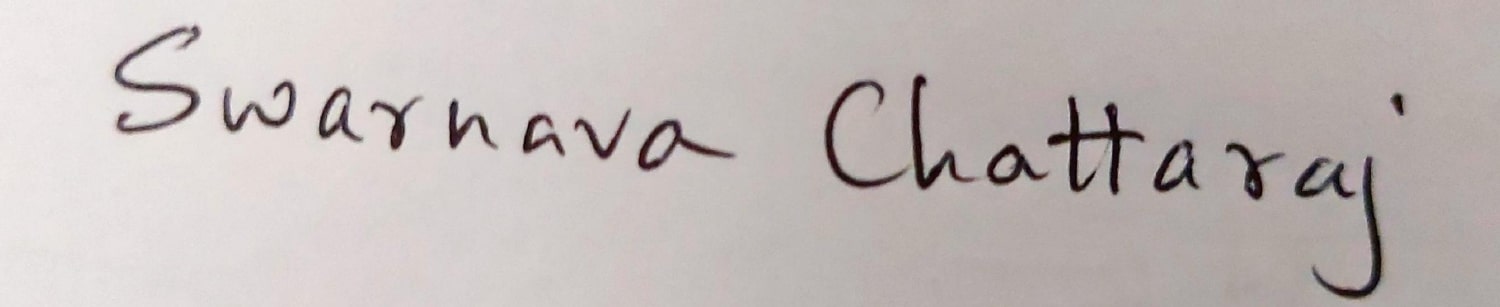 Swarnava Chattaraj